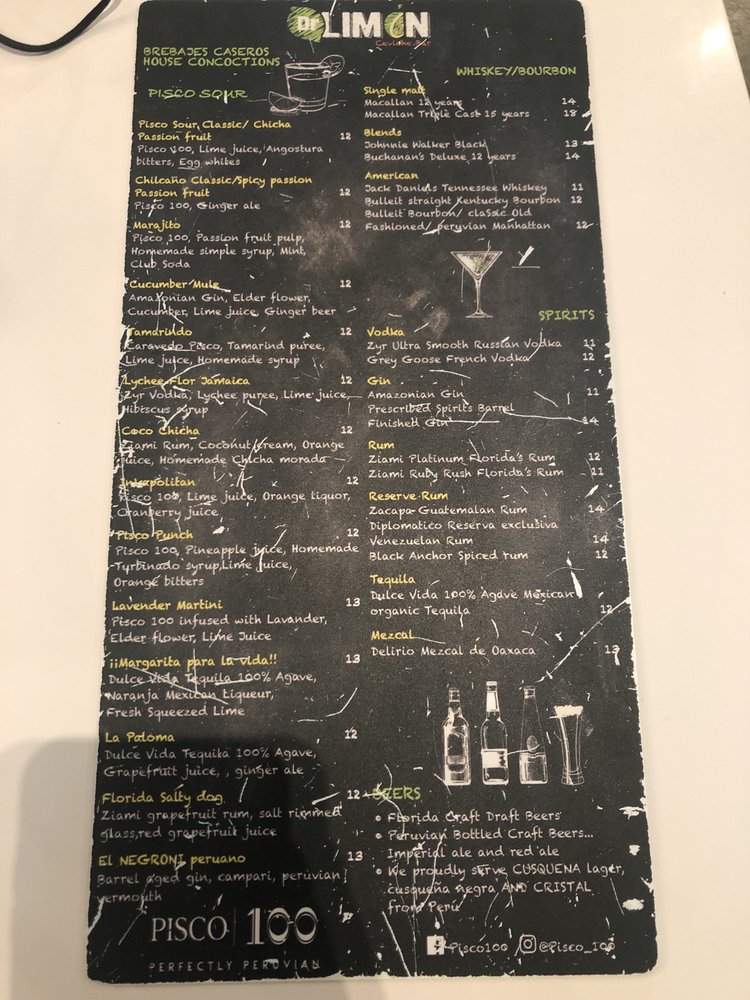 Dr LIMON
Ceviche Bar
BREBAJES CASEROS
HOUSE CONCOCTIONS
PISCO SOUR
Pisco Sour Classic/ Chicha
Passion fruit 12
Pisco 100, Lime juice, Angostura
bitters, Egg whites
Chilcano Classic/Spicy passion
Passion fruit 12
Pisco 100, Ginger ale
Marajito 12
Pisco 100, Passion fruit pulp,
Homemade simple syrup, Mint,
Club Soda
Cucumber Mule 12
Amazonian Gin, Elder flower,
Cucumber, Lime juice, Ginger beer
Tamarindo 12
Caravedo Pisco, Tamarind puree,
Lime juice, Homemade syrup
Lychee Flor Jamaica 12
Zyr Vodka, Lychee puree, Lime juice,
Hibiscus syrup
Coco Chicha 12
Ziami Rum, Coconut cream, Orange
juice, Homemade Chicha morada
12
Pisco 100, Lime juice, Orange liquor,
Cranberry juice
Pisco Punch 12
Pisco 100, Pineapple juice, Homemade
Turbinado syrup,Lime juice,
Orange bitters
Lavender Martini 13
Pisco 100 infused with Lavander,
Elder flower, Lime Juice
¡¡Margarita para la vida!! 13
Dulce Vida Tequila 100% Agave,
Naranja Mexican Liqueur,
Fresh Squeezed Lime
La Paloma 12
Dulce Vida Tequila 100% Agave,
Grapefruit juice, , ginger ale
Florida Salty dog 12
Ziami grapefruit rum, salt rimmed
glass,red grapefruit juice
EL NEGRONI peruano 13
Barrel aged gin, campari, peruvian
vermouth
PISCO | 100
PERFECTLY PERUVIAN
WHISKEY/BOURBON
Single malt
Macallan 12 years 14
Macallan Triple Cast 15 years 18
Blends
Johnnie Walker Black 13
Buchanan's Deluxe 12 years 14
American
Jack Daniels Tennessee Whiskey 11
Bulleit straight Kentucky Bourbon 12
Bulleit Bourbon/ classic Old
Fashioned/ peruvian Manhattan 12
SPIRITS
Vodka
Zyr Ultra Smooth Russian Vodka 11
Grey Goose French Vodka 12
Gin
Amazonian Gin 11
Prescribed Spirits Barrel
Finished Gin 14
Rum
Ziami Platinum Florida's Rum 12
Ziami Ruby Rush Florida's Rum 11
Reserve Rum
Zacapa Guatemalan Rum 14
Diplomatico Reserva exclusiva
Venezuelan Rum 14
Black Anchor Spiced rum 12
Tequila
Dulce Vida 100% Agave Mexican
organic Tequila 12
Mezcal
Delirio Mezcal de Oaxaca 13
BEERS
• Florida Craft Draft Beers
• Peruvian Bottled Craft Beers...
Imperial ale and red ale
• We proudly serve CUSQUENA lager,
cusqueña negra AND CRISTAL
from Perú
Pisco100 @Pisco_100